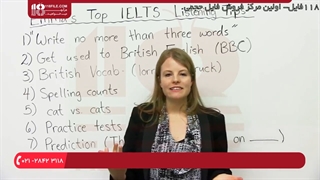 ۱۱۸فایل- اولین مرکز فروش فایل حجمی
118FILE.COM
Top IELTS Listening Tips
1) "Write no more than three words"
2) Get used to British English (BBC)
3) British Vocab - (lorry truck)
4) Spelling counts
5) cat vs cats
6) Practice tests
7) Prediction on
۰۲۱-۲۸۴۲ ۳۱۱۸